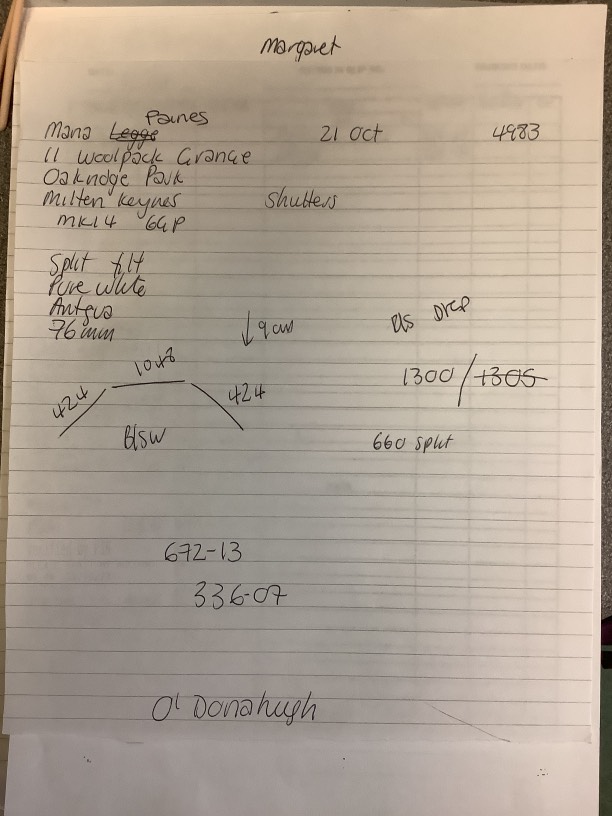 Margaret
Paines
Maria Legge 21 Oct 4983
11 Woolpack Grange
Oakridge Park
Milten Keynes Shutters
MK14 6GP
Split tilt
Pure White
Antgua
76mm
↓ 9am
B/S Drop
1048
424 424
1300/1305
BISW
660 split
672-13
336-07
O' Donahugh